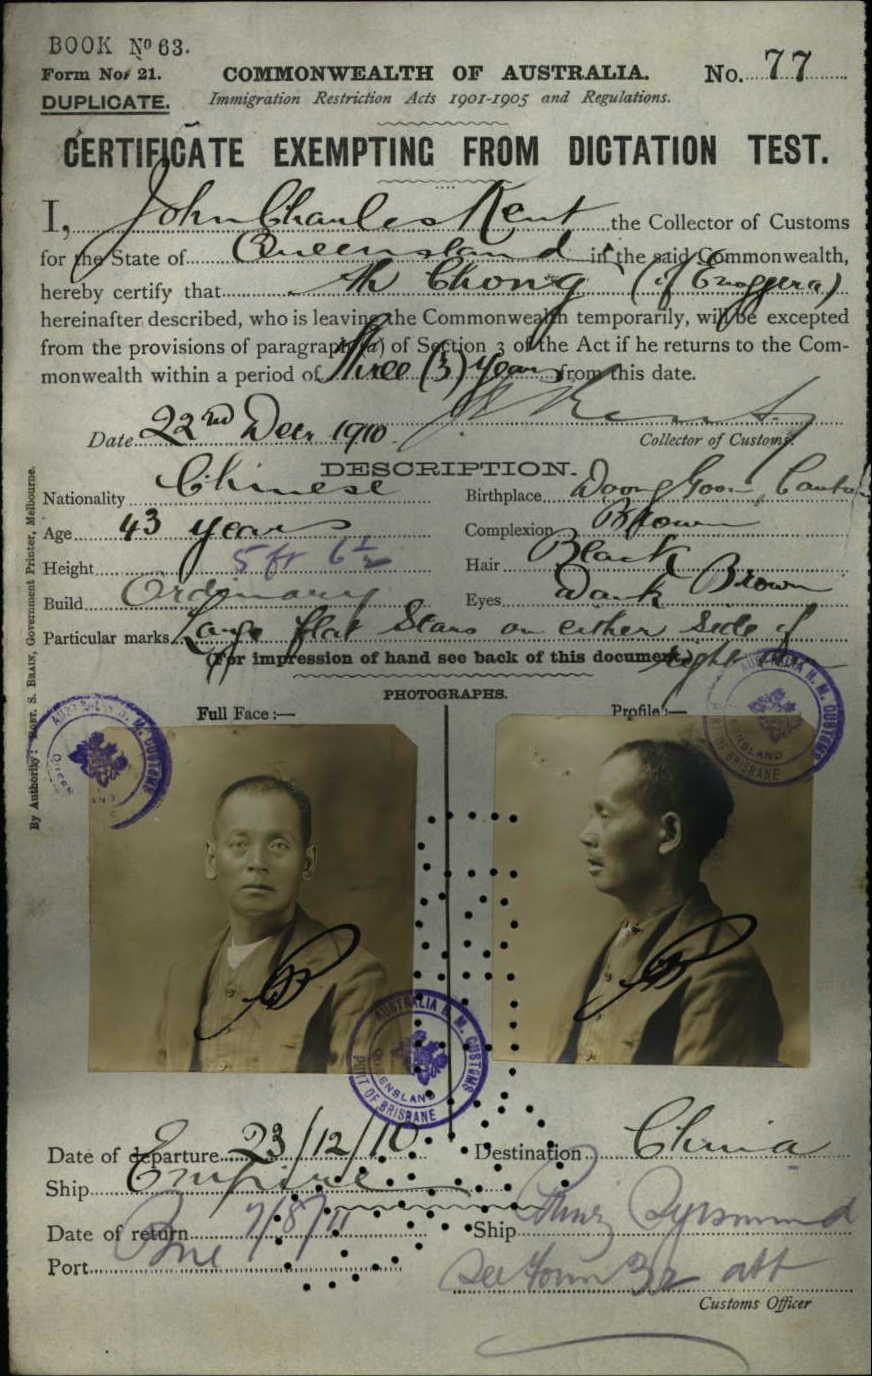 BOOK No 63.
Form No. 21.
DUPLICATE.
COMMONWEALTH OF AUSTRALIA.
No. 77
Immigration Restriction Acts 1901-1905 and Regulations.
CERTIFICATE EXEMPTING FROM DICTATION TEST.
I, John Charles Kent the Collector of Customs
for the State of Queensland in the said Commonwealth,
hereby certify that Ah Chong (of Enoggera)
hereinafter described, who is leaving the Commonwealth temporarily, will be excepted
from the provisions of paragraph (a) of Section 3 of the Act if he returns to the Com-
monwealth within a period of Three (3) years from this date.
Date 22nd Decr 1910.
Collector of Customs.
DESCRIPTION.
Nationality Chinese
Birthplace Canton
Age 43 years
Complexion Brown
Height 5 ft 6½
Hair Black
Build Ordinary
Eyes Dark Brown
Particular marks Large flat Scars on either side of
right
(For impression of hand see back of this document.)
PHOTOGRAPHS.
Full Face :—
Profile :—
AUSTRALIA H. M. CUSTOMS
QUEENSLAND
PORT OF BRISBANE
AUSTRALIA H. M. CUSTOMS
QUEENSLAND
AUSTRALIA H. M. CUSTOMS
QUEENSLAND
PORT OF BRISBANE
Date of departure 23/12/10
Destination China
Ship Empire
Date of return 7/8/11
Ship Prinz Sigismund
Port Bne
See Form 32 att
Customs Officer
By Authority: ROBT. S. BRAIN, Government Printer, Melbourne.